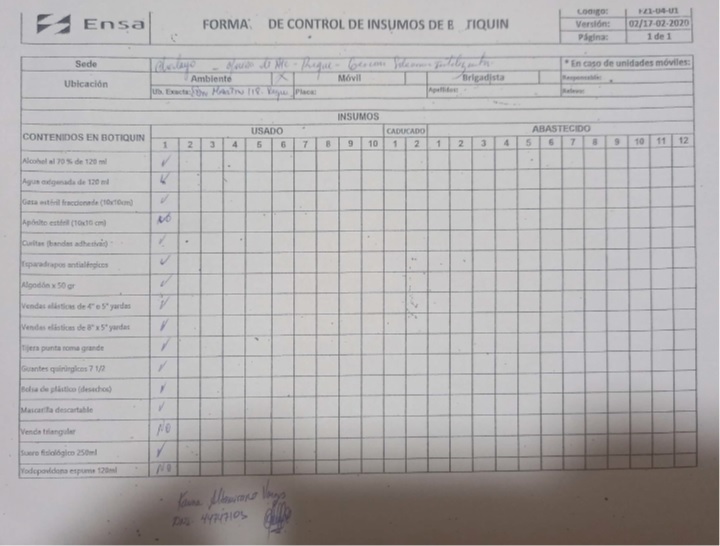 Ensa
FORMA DE CONTROL DE INSUMOS DE B TIQUIN
Código: F21-04-01
Versión: 02/17-02-2020
Página: 1 de 1
Sede
* En caso de unidades móviles:
Ubicación Ambiente X Móvil Brigadista Responsable:
Ub. Exacta: San Martin 118 Placa: Apellidos:
INSUMOS
CONTENIDOS EN BOTIQUIN USADO CADUCADO ABASTECIDO
1 2 3 4 5 6 7 8 9 10 1 2 1 2 3 4 5 6 7 8 9 10 11 12
Alcohol al 70% de 120 ml ✓
Agua oxigenada de 120 ml ✓
Gasa estéril fraccionada (10x10cm) ✓
Apósito estéril (10x10 cm) NO
Curitas (bandas adhesivas) ✓
Esparadrapos antialérgicos ✓
Algodón x 50 gr ✓
Vendas elásticas de 4" o 5" yardas ✓
Vendas elásticas de 8" x 5" yardas ✓
Tijera punta roma grande ✓
Guantes quirúrgicos 7 1/2 ✓
Bolsa de plástico (desechos) ✓
Mascarilla descartable ✓
Venda triangular NO
Suero fisiológico 250ml ✓
Yodopovidona espuma 120ml NO